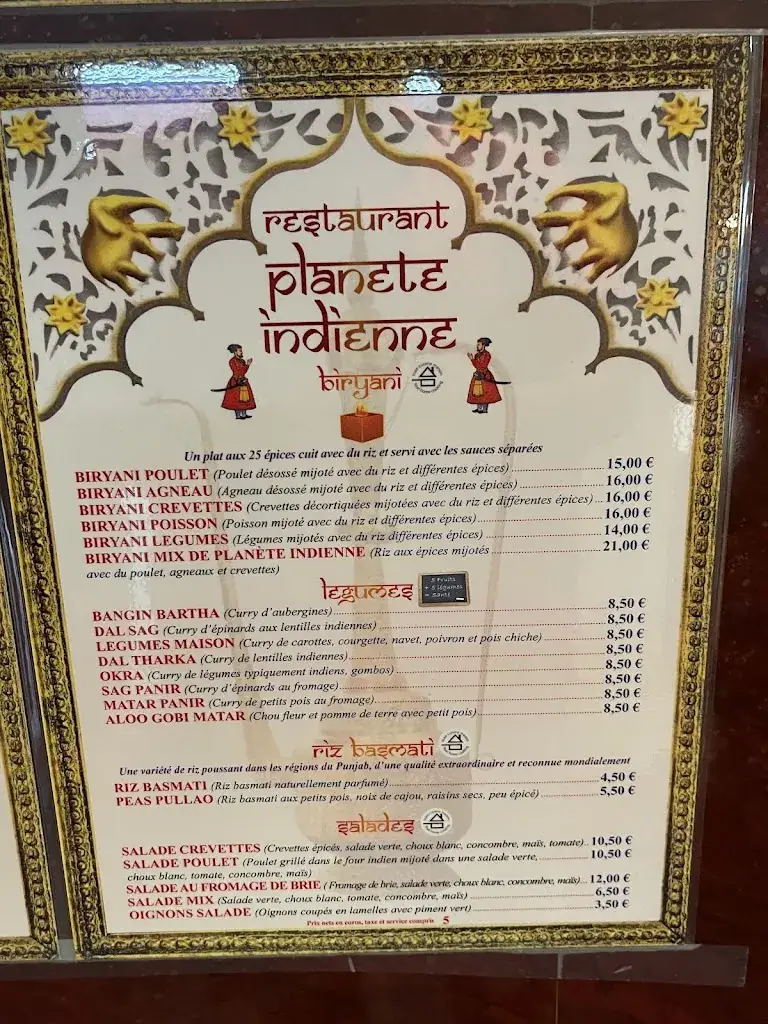 restaurant
planete
indienne
biryani
Un plat aux 25 épices cuit avec du riz et servi avec les sauces séparées
BIRYANI POULET (Poulet désossé mijoté avec du riz et différentes épices) 15,00 €
BIRYANI AGNEAU (Agneau désossé mijoté avec du riz et différentes épices) 16,00 €
BIRYANI CREVETTES (Crevettes décortiquées mijotées avec du riz et différentes épices) 16,00 €
BIRYANI POISSON (Poisson mijoté avec du riz et différentes épices) 16,00 €
BIRYANI LEGUMES (Légumes mijotés avec du riz différentes épices) 14,00 €
BIRYANI MIX DE PLANÈTE INDIENNE (Riz aux épices mijotés 21,00 €
avec du poulet, agneaux et crevettes)
legumes
5 Fruits
+ 5 légumes
= Santé
BANGIN BARTHA (Curry d'aubergines) 8,50 €
DAL SAG (Curry d'épinards aux lentilles indiennes) 8,50 €
LEGUMES MAISON (Curry de carottes, courgette, navet, poivron et pois chiche) 8,50 €
DAL THARKA (Curry de lentilles indiennes) 8,50 €
OKRA (Curry de légumes typiquement indiens, gombos) 8,50 €
SAG PANIR (Curry d'épinards au fromage) 8,50 €
MATAR PANIR (Curry de petits pois au fromage) 8,50 €
ALOO GOBI MATAR (Chou fleur et pomme de terre avec petit pois) 8,50 €
riz basmati
Une variété de riz poussant dans les régions du Punjab, d'une qualité extraordinaire et reconnue mondialement
RIZ BASMATI (Riz basmati naturellement parfumé) 4,50 €
PEAS PULLAO (Riz basmati aux petits pois, noix de cajou, raisins secs, peu épicé) 5,50 €
salades
SALADE CREVETTES (Crevettes épicés, salade verte, choux blanc, concombre, maïs, tomate) 10,50 €
SALADE POULET (Poulet grillé dans le four indien mijoté dans une salade verte, 10,50 €
choux blanc, tomate, concombre, maïs)
SALADE AU FROMAGE DE BRIE (Fromage de brie, salade verte, choux blanc, concombre, maïs) 12,00 €
SALADE MIX (Salade verte, choux blanc, tomate, concombre, maïs) 6,50 €
OIGNONS SALADE (Oignons coupés en lamelles avec piment vert) 3,50 €
Prix nets en euros, taxe et service compris 5